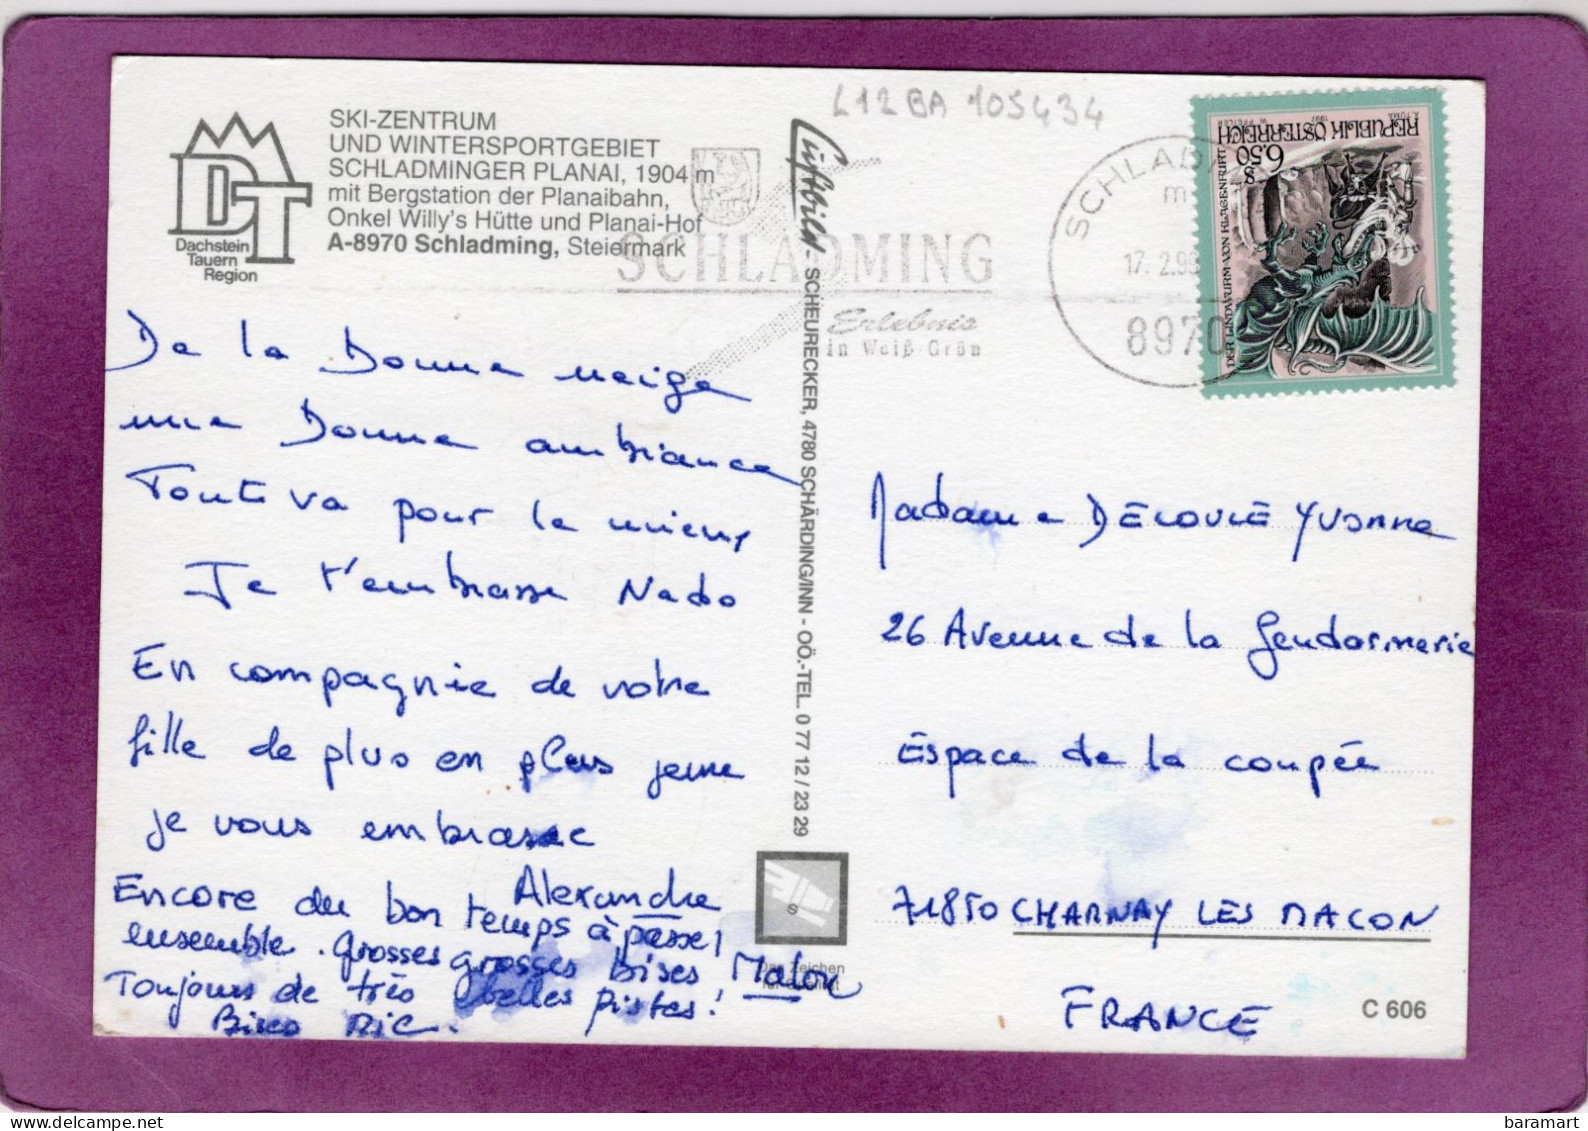 L12BA 105434
SKI-ZENTRUM
UND WINTERSPORTGEBIET
SCHLADMINGER PLANAI, 1904 m
mit Bergstation der Planaibahn,
Onkel Willy's Hütte und Planai-Hof
A-8970 Schladming, Steiermark
DT
Dachstein
Tauern
Region
SCHLADMING
Erlebnis
in Weiß-Grün
17. 2.98
8970
REPUBLIK ÖSTERREICH
6.50 S
DER LINDWURM VON KLAGENFURT
A. TUMA 1997 W. PFEILER
Luftbild - SCHEURECKER, 4780 SCHÄRDING/INN - OÖ.-TEL. 0 77 12 / 23 29
De la Bonne neige
une Bonne ambiance
Tout va pour le mieux
Je t'embrasse Nado
En compagnie de votre
fille de plus en plus jeune
je vous embrasse
Alexandre
Encore du bon temps à passer
ensemble. Grosses grosses bises Malou
Toujours de très belles pistes!
Bises Ric.
Das Zeichen
für Qualität
Madame DECOULE YVONNE
26 Avenue de la Gendarmerie
Espace de la coupée
71850 CHARNAY LES MACON
FRANCE
C 606
Copyright delcampe.net
baramart